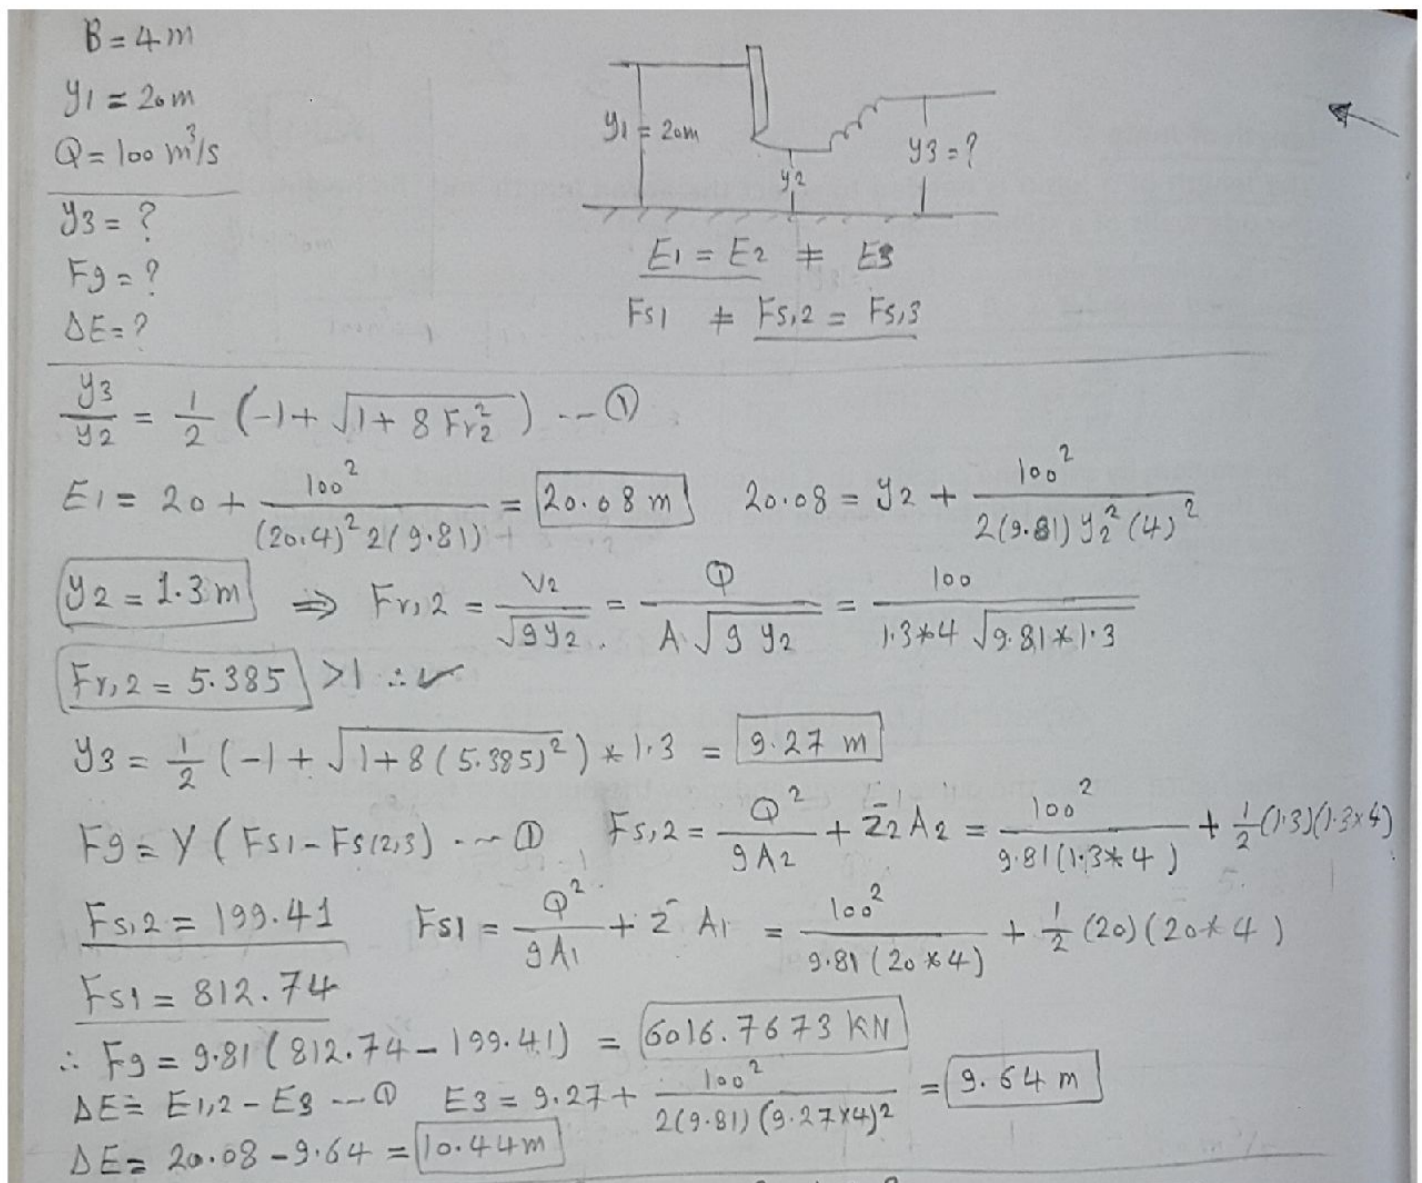 B = 4 m
y1 = 20 m
Q = 100 m³/s
y3 = ?
Fg = ?
ΔE = ?
y1 = 20m
y2
y3 = ?
E1 = E2 ≠ E3
Fs1 ≠ Fs,2 = Fs,3
y3/y2 = 1/2 (-1 + √(1 + 8 Fr2²)) --- ①
E1 = 20 + 100²/((20.4)² 2(9.81)) = 20.08 m 20.08 = y2 + 100²/(2(9.81) y2² (4)²)
y2 = 1.3 m ⇒ Fr,2 = V2/√(g y2) = Q/(A √(g y2)) = 100/(1.3*4 √(9.81*1.3))
Fr,2 = 5.385 >1 ∴ ✓
y3 = 1/2 (-1 + √(1 + 8 (5.385)²)) * 1.3 = 9.27 m
Fg = γ (Fs1 - Fs(2,3) --- ① Fs,2 = Q²/(g A2) + z̄2 A2 = 100²/(9.81(1.3*4)) + 1/2 (1.3)(1.3×4)
Fs,2 = 199.41 Fs1 = Q²/(g A1) + z̄ A1 = 100²/(9.81 (20*4)) + 1/2 (20)(20*4)
Fs1 = 812.74
∴ Fg = 9.81 (812.74 - 199.41) = 6016.7673 KN
ΔE = E1,2 - E3 --- ① E3 = 9.27 + 100²/(2(9.81)(9.27×4)2) = 9.64 m
ΔE = 20.08 - 9.64 = 10.44m